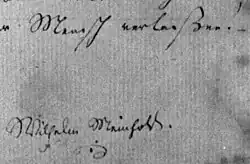 r Mensch verließen!
Wilhelm Meinhold.